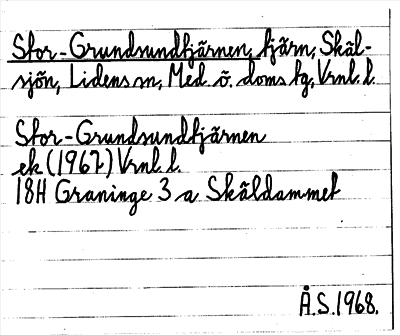 Stor-Grundsundtjärnen, tjärn, Skäl-
sjön, Lidens sn, Med. ö. doms tg, Vrnl. l.
Stor-Grundsundtjärnen
ek (1967) Vrnl. l.
18H Graninge 3 a Skäldammet
Å.S. 1968.